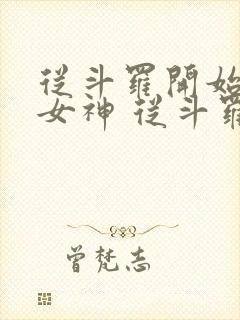 從斗羅開始
女神 從斗羅
曾梵志